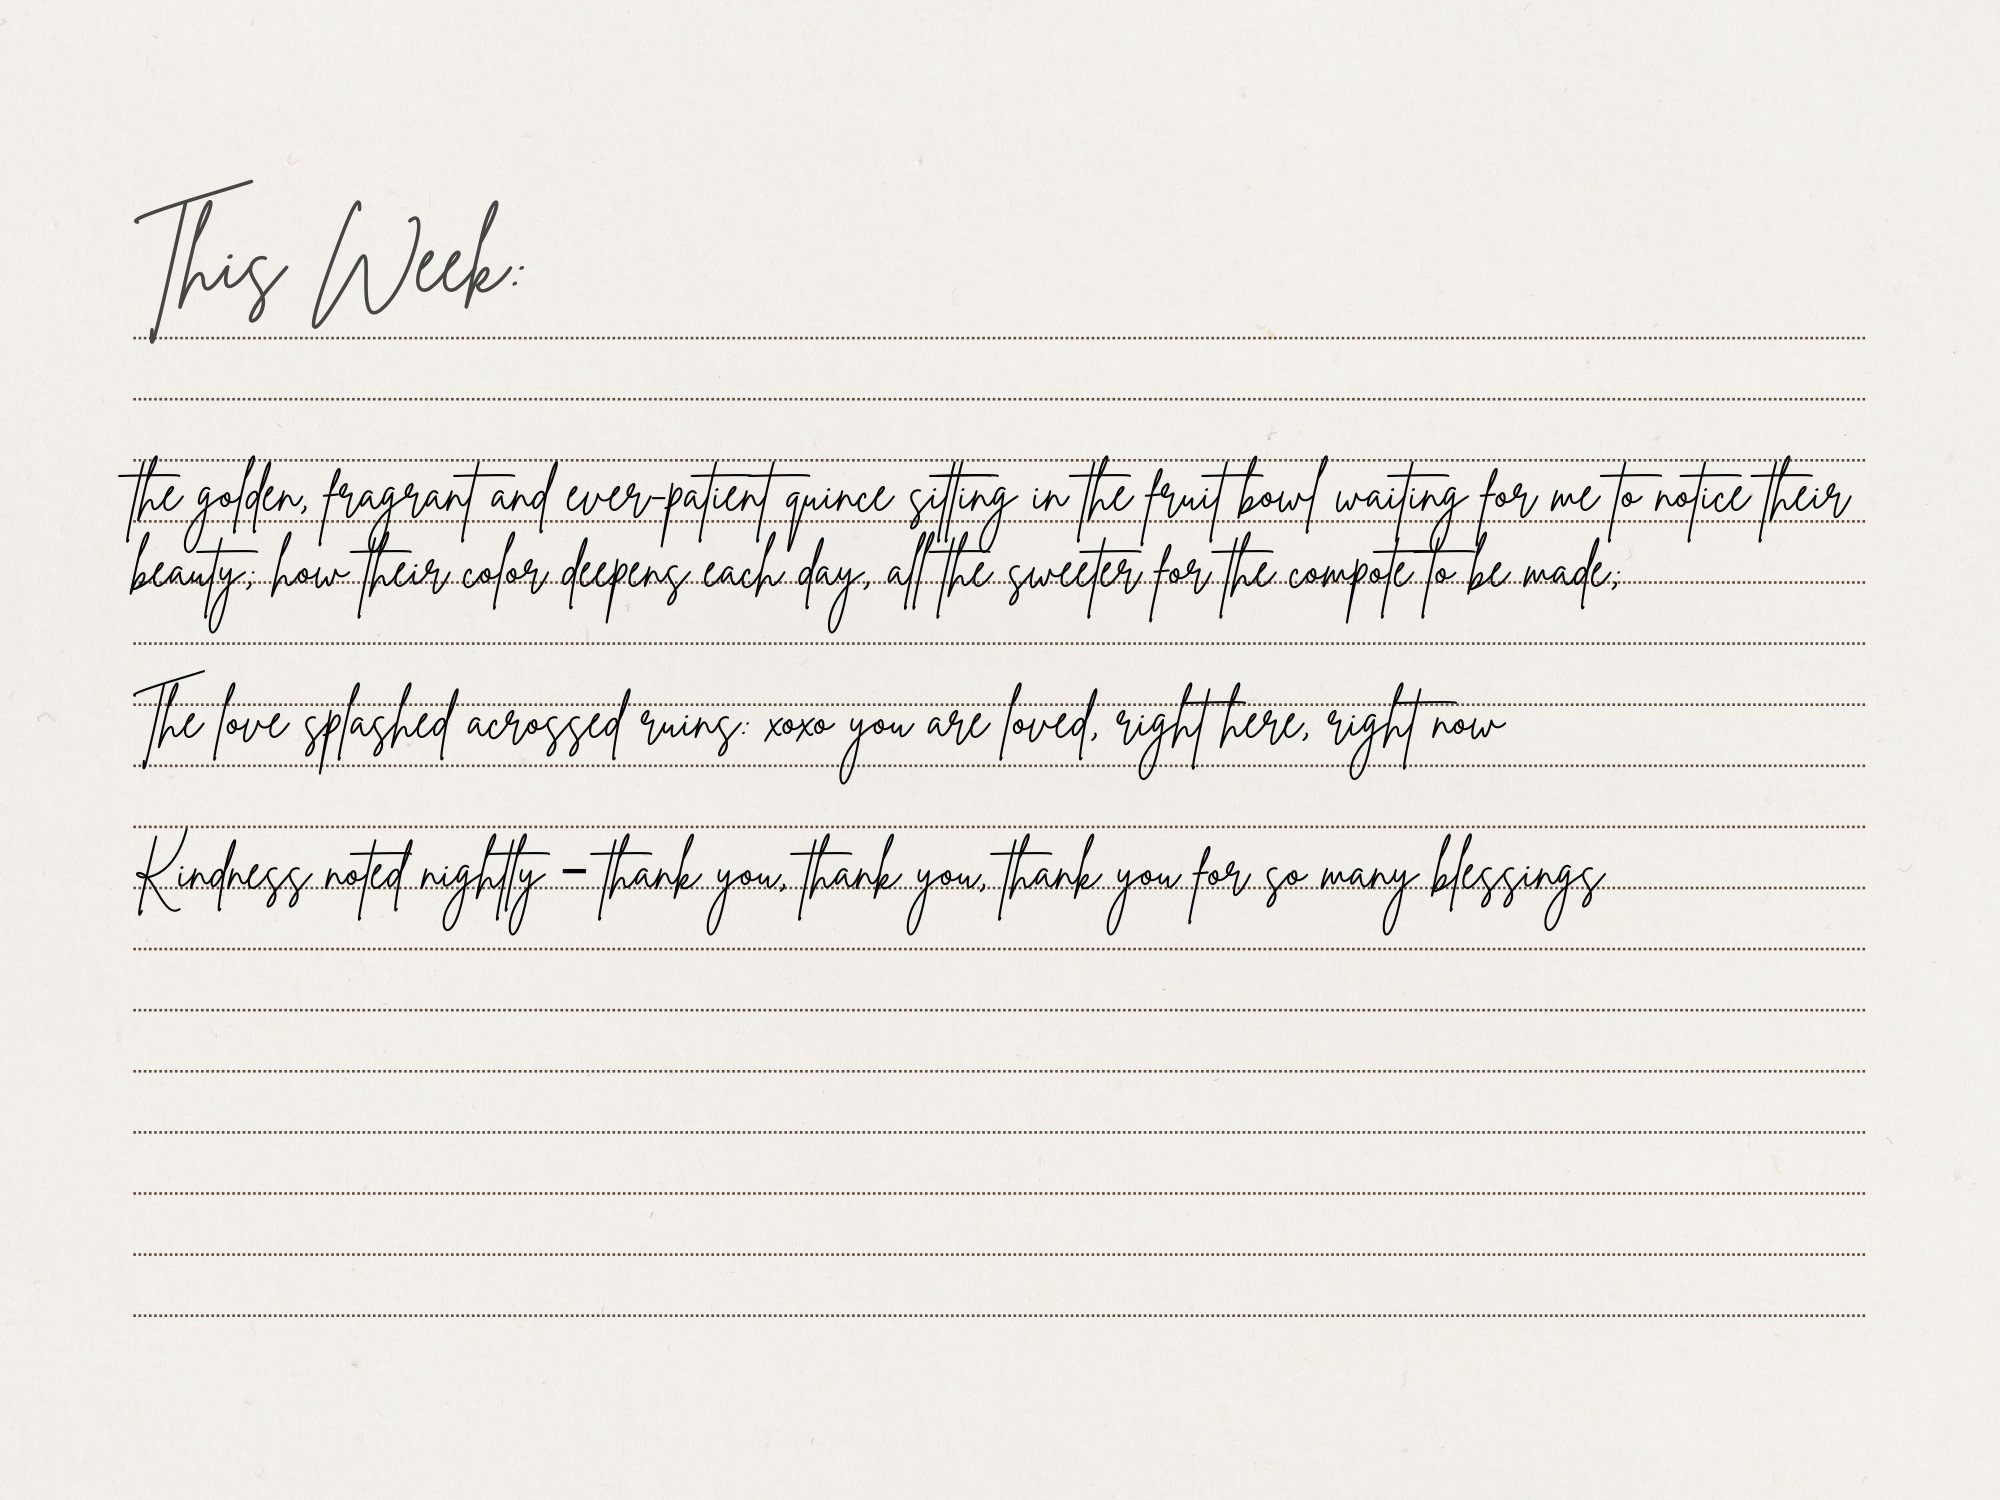 This Week:
the golden, fragrant and ever-patient quince sitting in the fruit bowl waiting for me to notice their
beauty; how their color deepens each day, all the sweeter for the compote to be made;
The love splashed acrossed ruins: xoxo you are loved, right here, right now
Kindness noted nightly – thank you, thank you, thank you for so many blessings